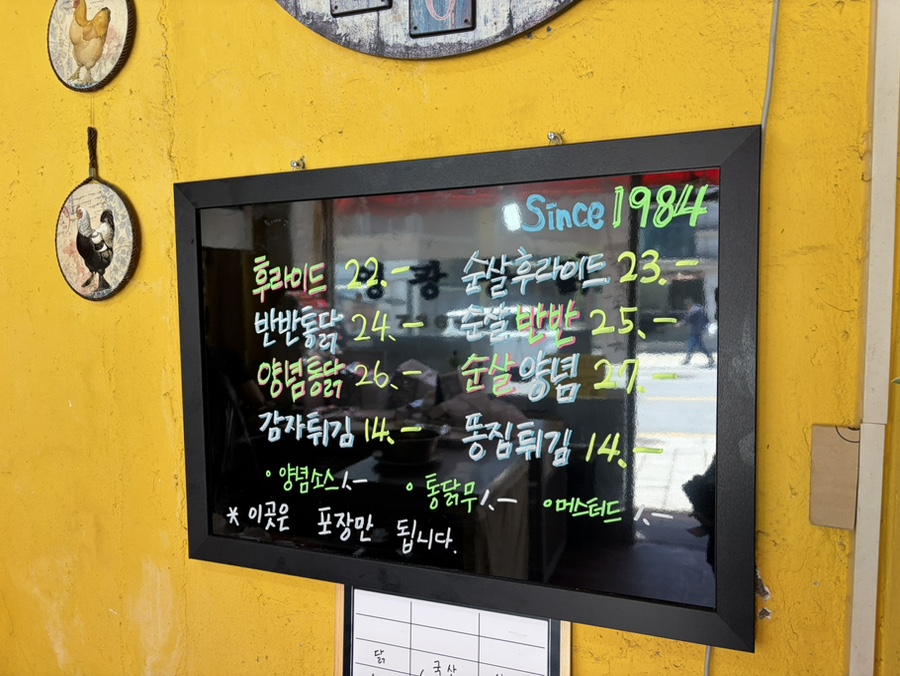 Since 1984
후라이드 22.- 순살후라이드 23.-
반반통닭 24.- 순살반반 25.-
양념통닭 26.- 순살양념 27.-
감자튀김 14.- 똥집튀김 14.-
• 양념소스 1.- • 통닭무 1.- • 메스터드 1.-
* 이곳은 포장만 됩니다.
닭 국산